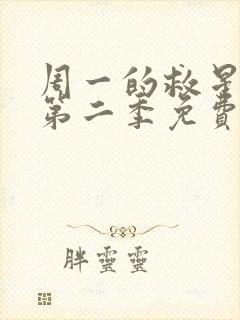 周一的救星
第二季免費
胖靈靈